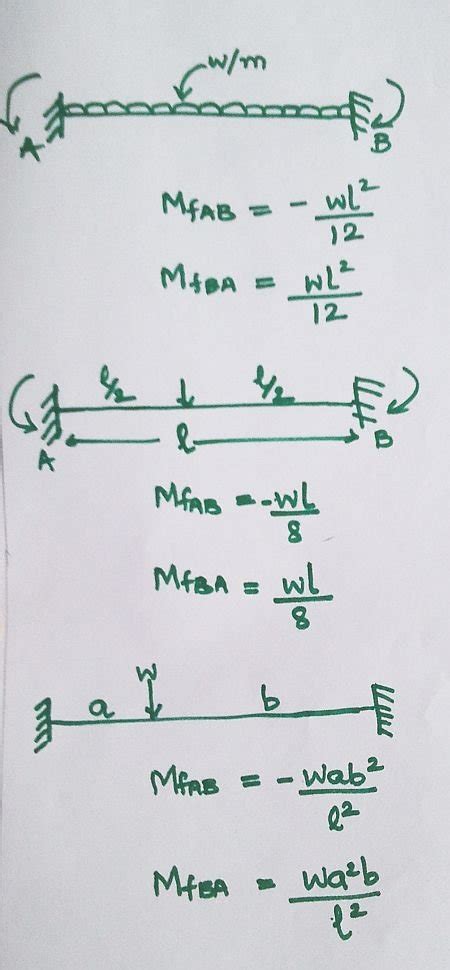 w/m
A B
MfAB = - wl²/12
MfBA = wl²/12
l/2 l/2
l
A B
MfAB = -wl/8
MfBA = wl/8
W
a b
MfAB = - Wab²/l²
MfBA = Wa²b/l²